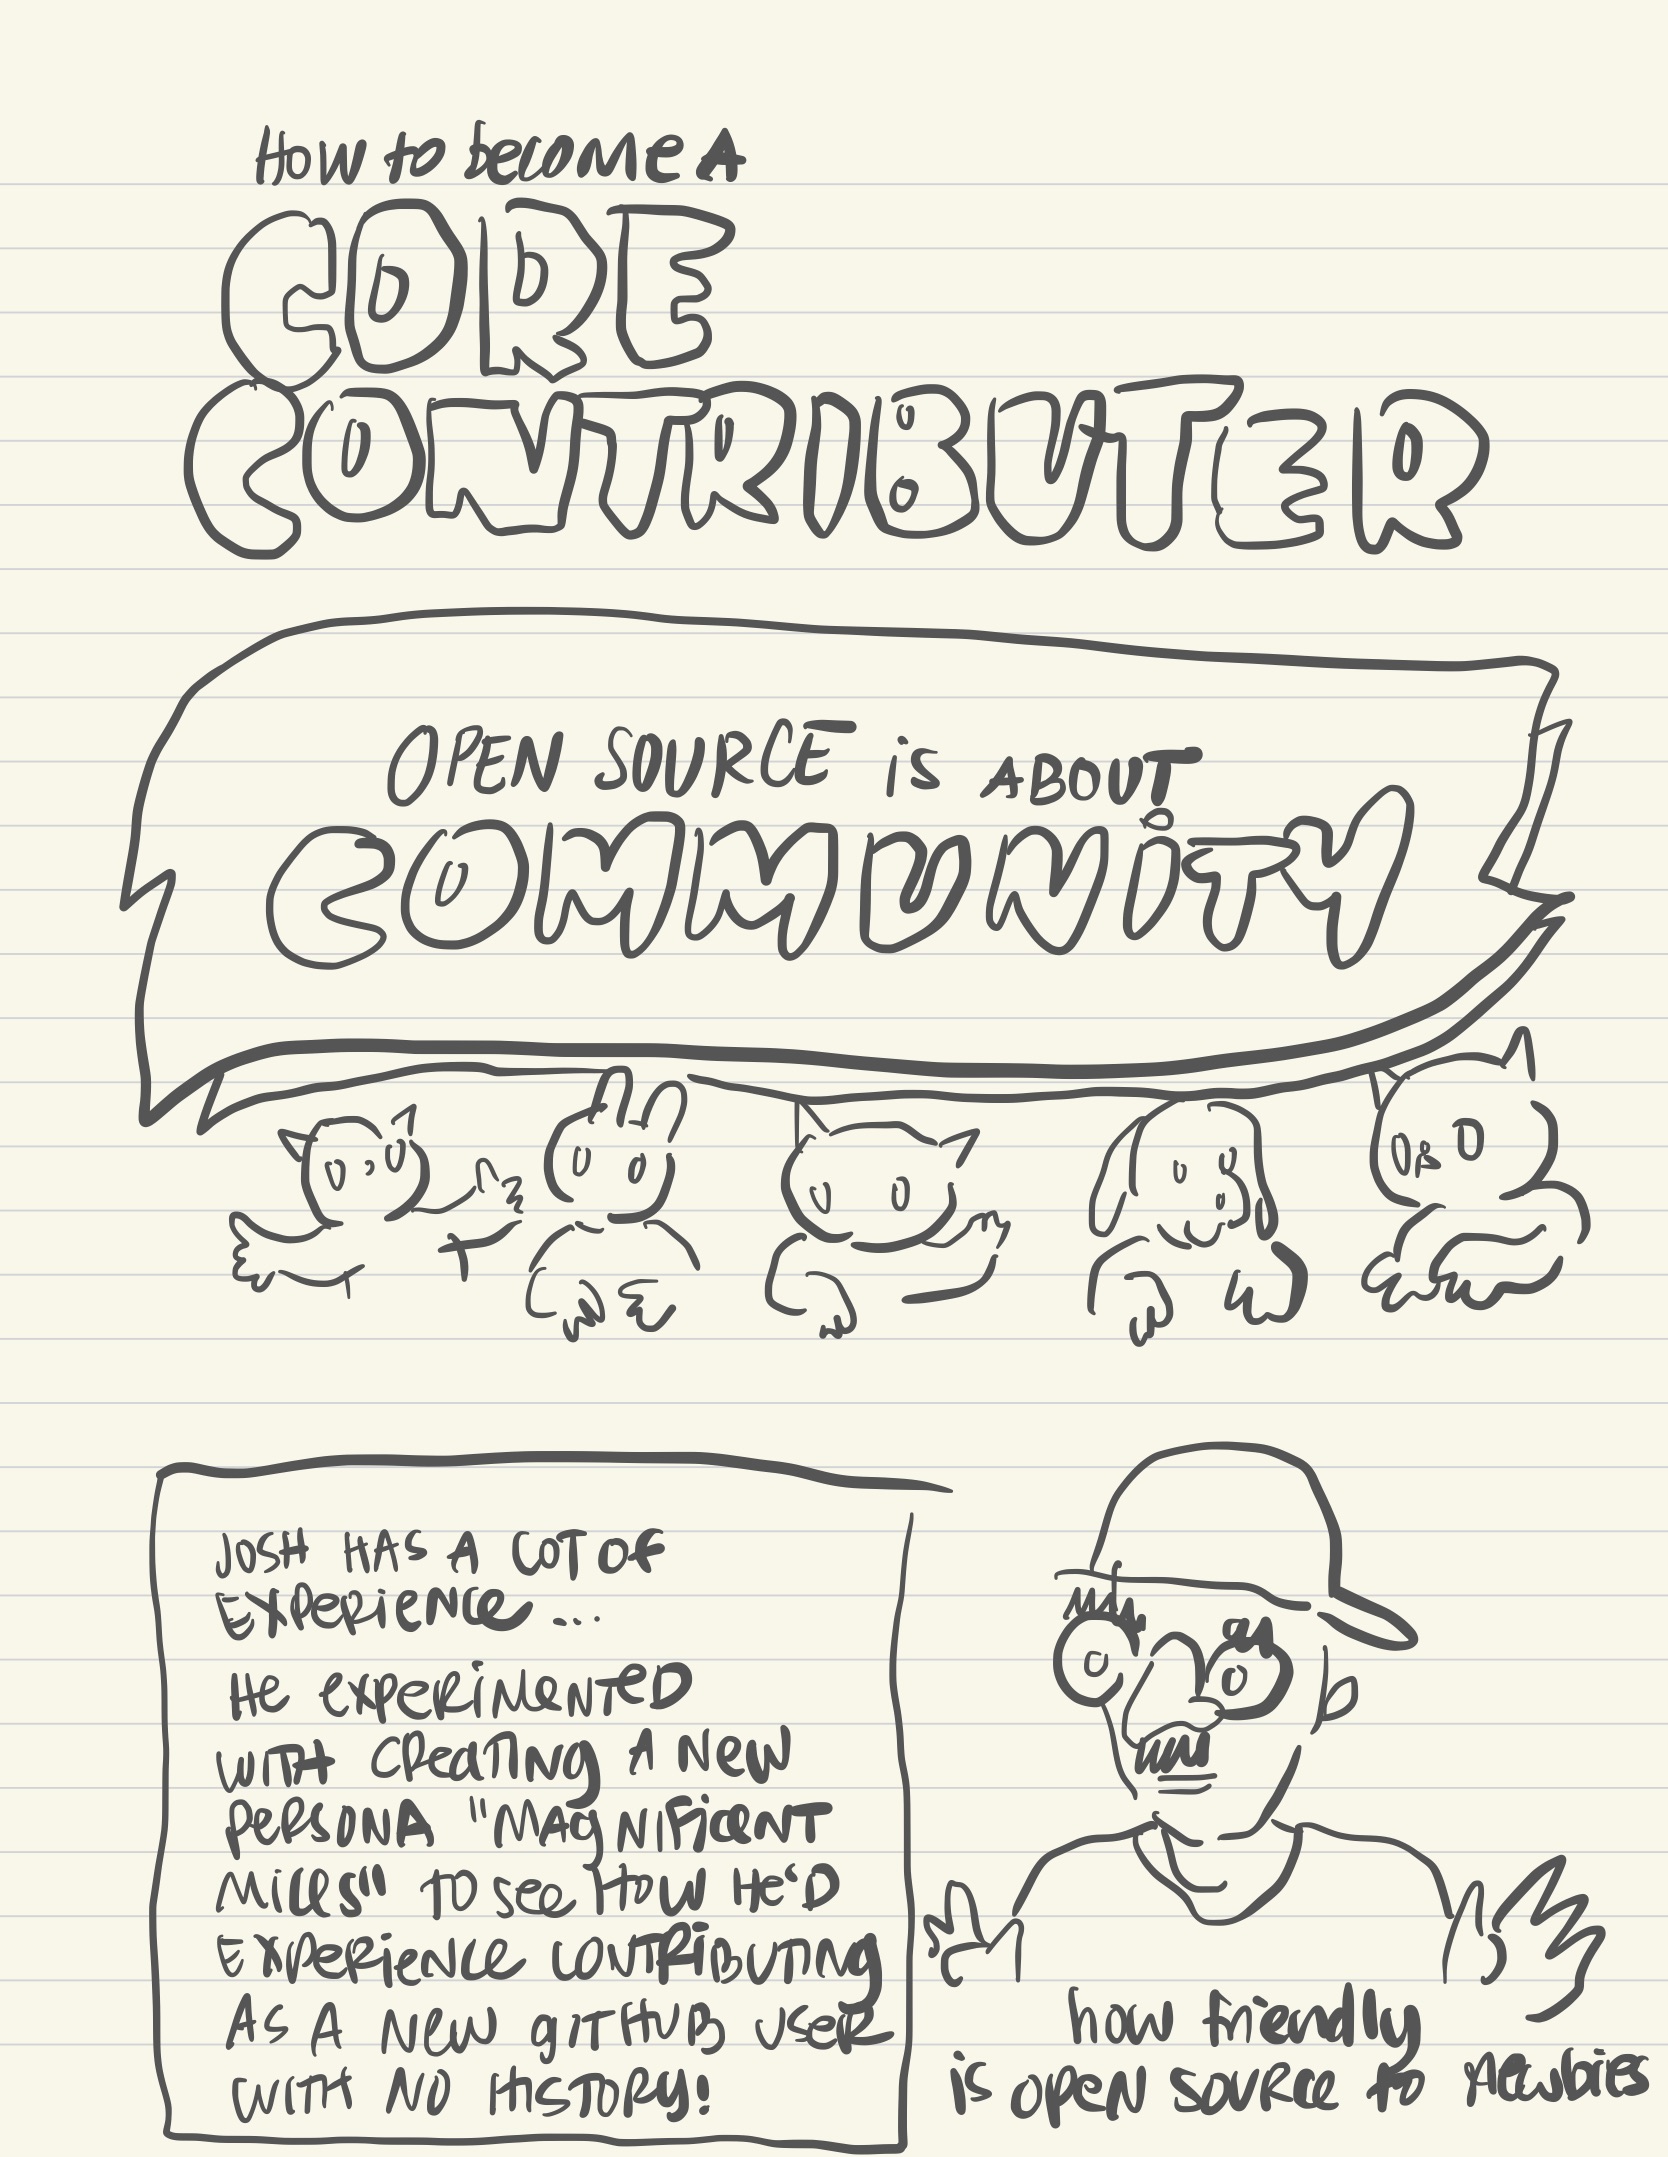 How to become A
CORE
CONTRIBUTER
OPEN SOURCE is ABOUT
COMMUNiTY
JOSH HAS A LOT OF
EXPERIENCE ...
HE EXPERIMENTED
WITH CREATING A NEW
PERSONA "MAGNIFICENT
MILLS" TO SEE HOW HE'D
EXPERIENCE CONTRIBUTING
AS A NEW GITHUB USER
WITH NO HISTORY!
how friendly
is open source to newbies